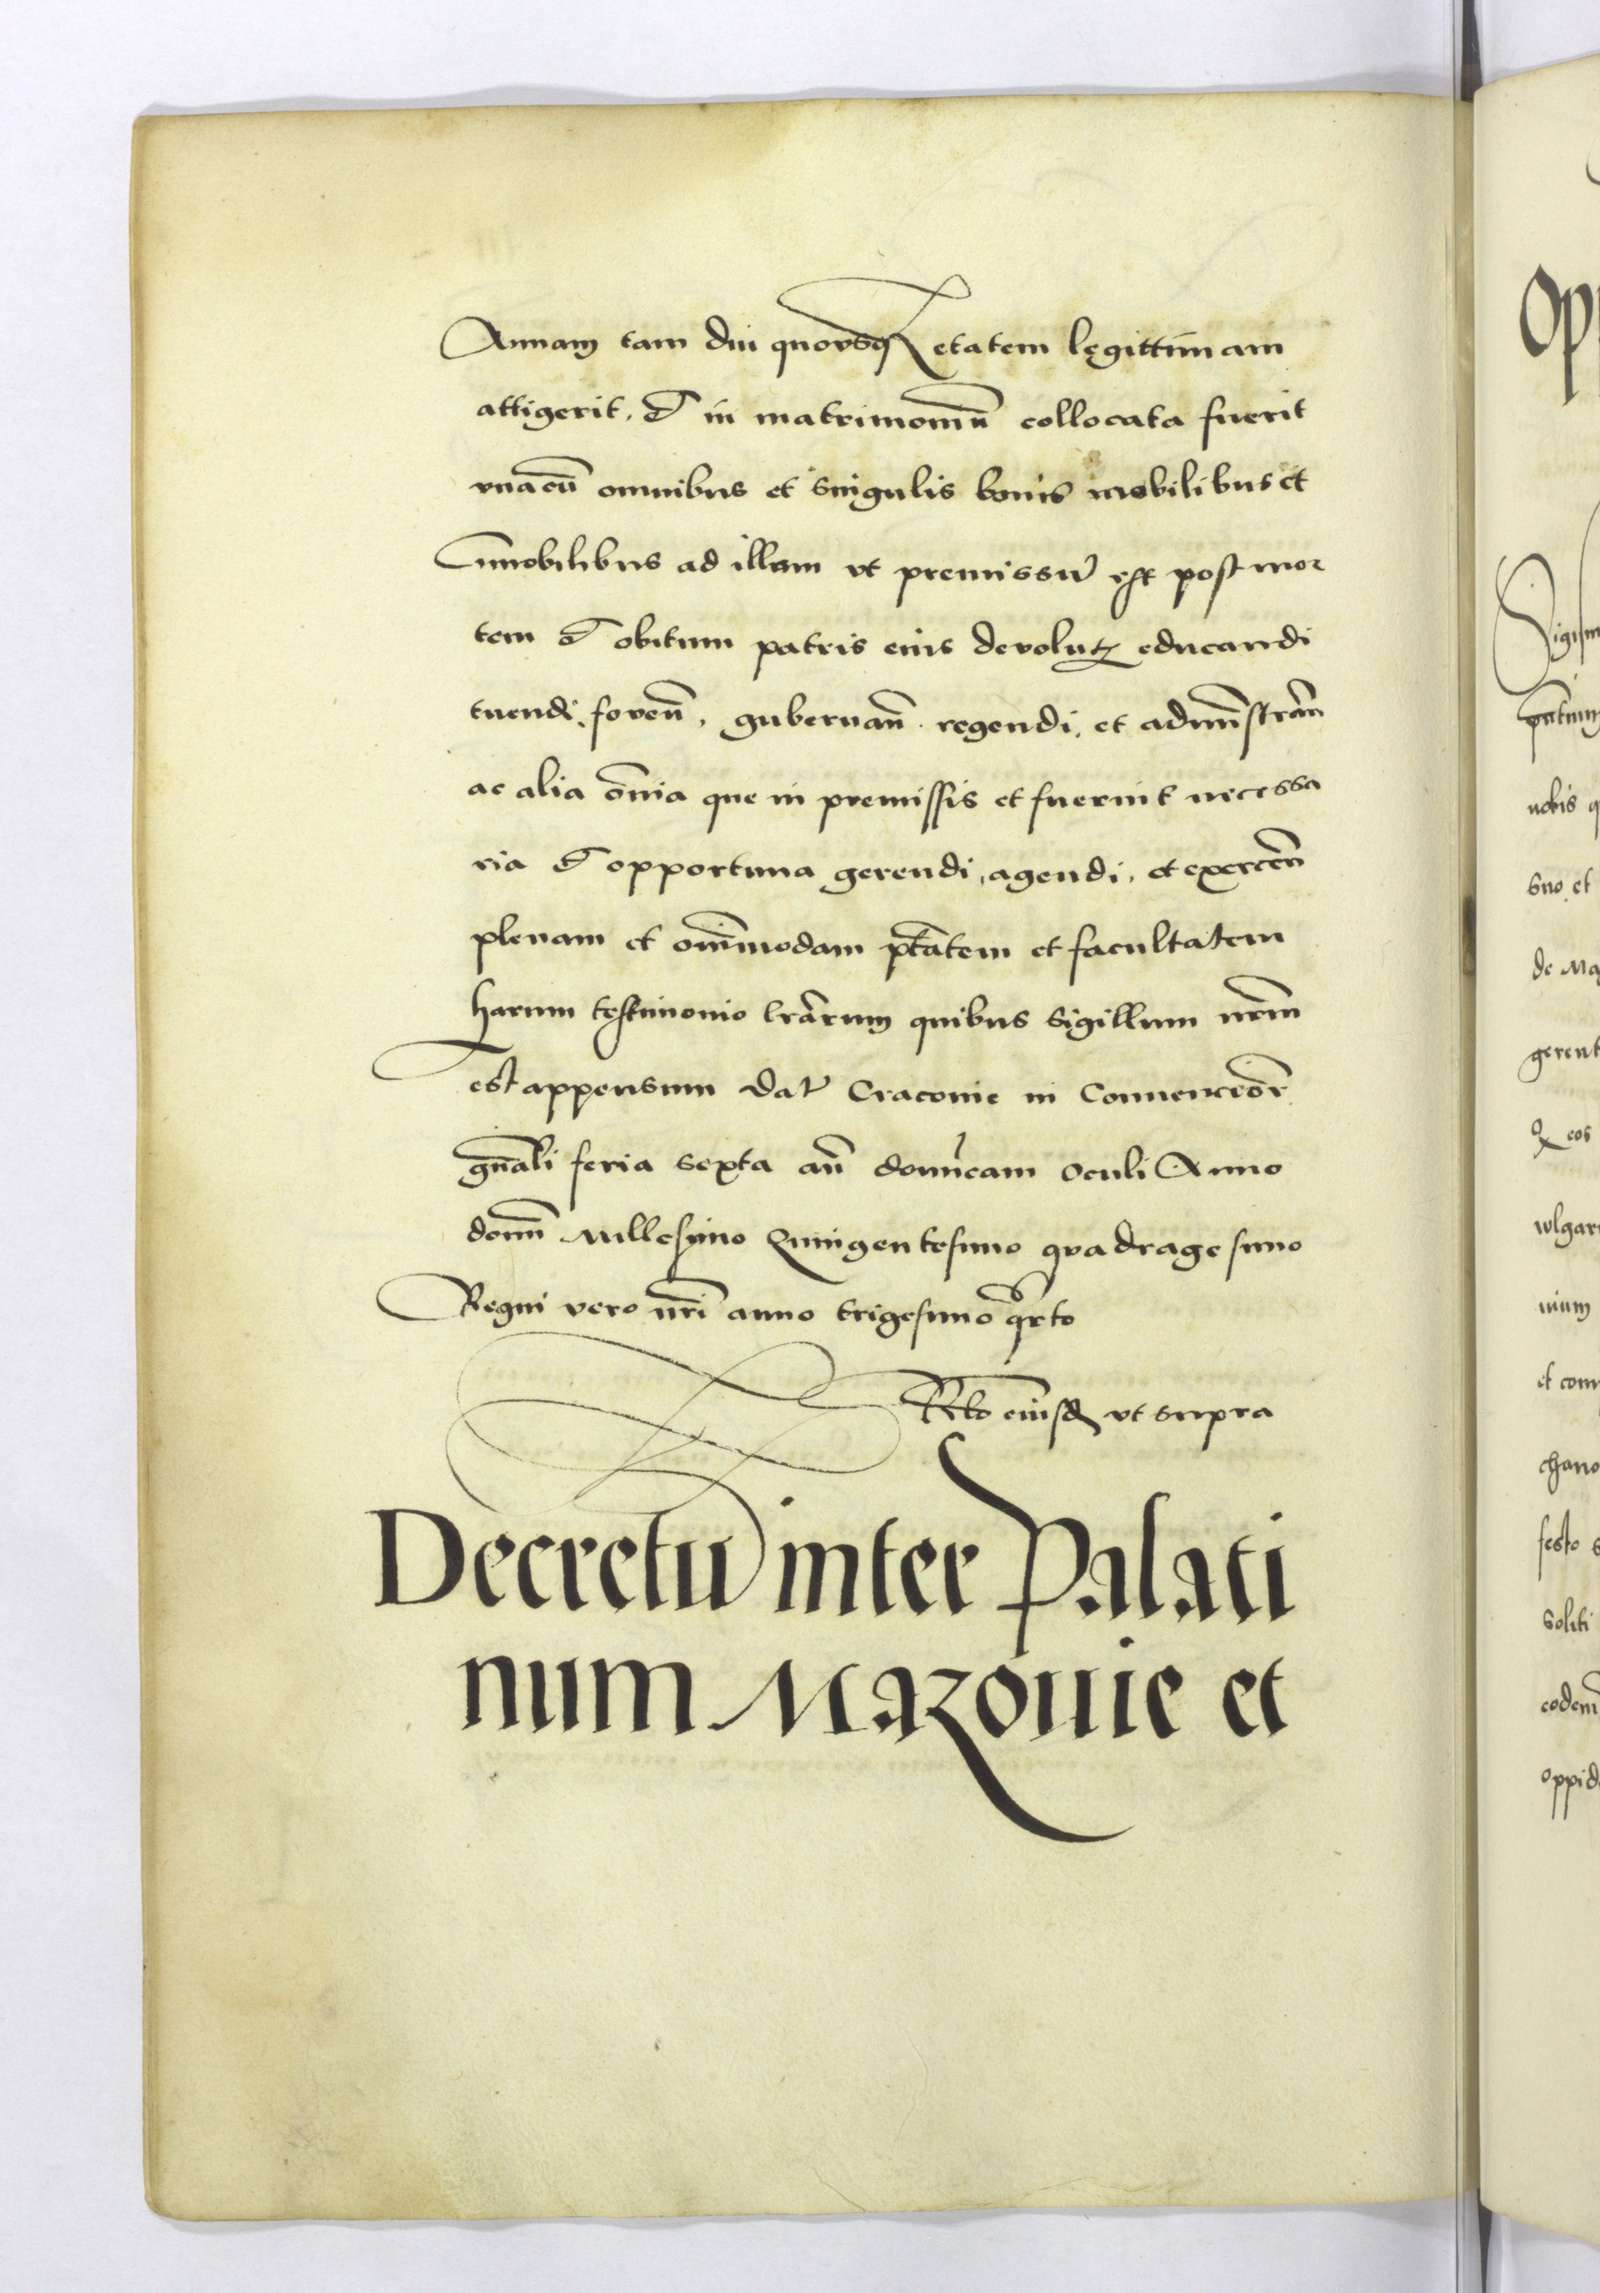 Annam tam diu quovsq etatem legittimam
attigerit, et in matrimoniū collocata fuerit
vnacū omnibus et singulis bonis mobilibus et
Immobilibus ad illam vt premissū est post mor
tem et obitum patris eius devolutꝫ educandi
tuendi, foveñ, gubernañ, regendi, et administrañ
ac alia oīnia que in premissis et fuerint necessa
ria et opportuna gerendi, agendi, et exerceñ
plenam et oīmmodam ptātem et facultatem
harum testimonio lrārum quibus sigillum nrūm
est appensum Dat Cracovie in Conuencione
gnāli feria sexta añ domīcam Oculi Anno
domī Millesimo Quingentesimo quadragesimo
Regni vero nrī anno trigesimo qrto
Rlō eiusdē vt supra
Decretū inter Palati
num Mazouie et
Opp
Sigism
pntium
nobis q
suo et
de Ma
gerent
eos
wlgari
uium
et com
chano
festo s
soliti
eodem
oppid